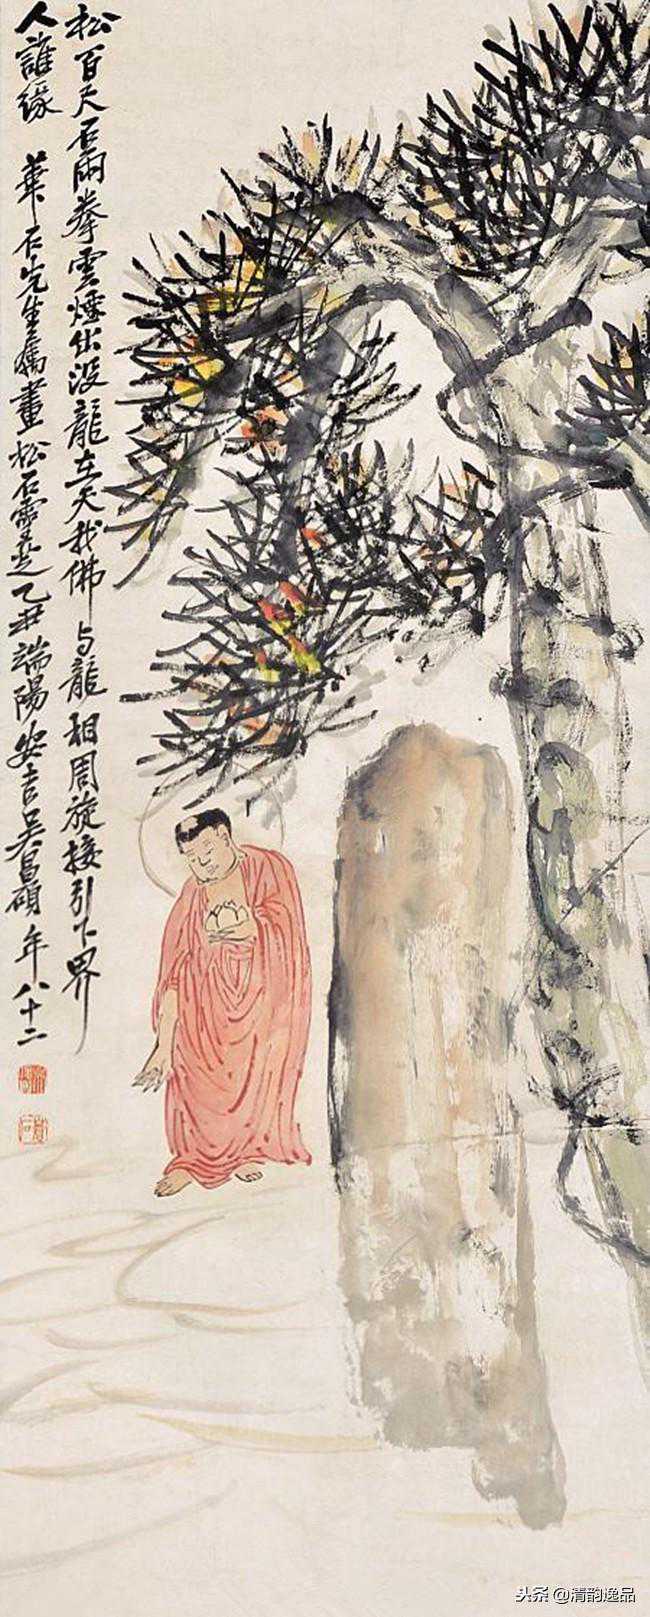 松百尺石兩拳雲煙出沒龍在天我佛与龍相周旋接引下界
人誰緣 華石先生屬畫松石靈芝乙丑端陽安吉吳昌碩年八十二
头条 @清韵逸品